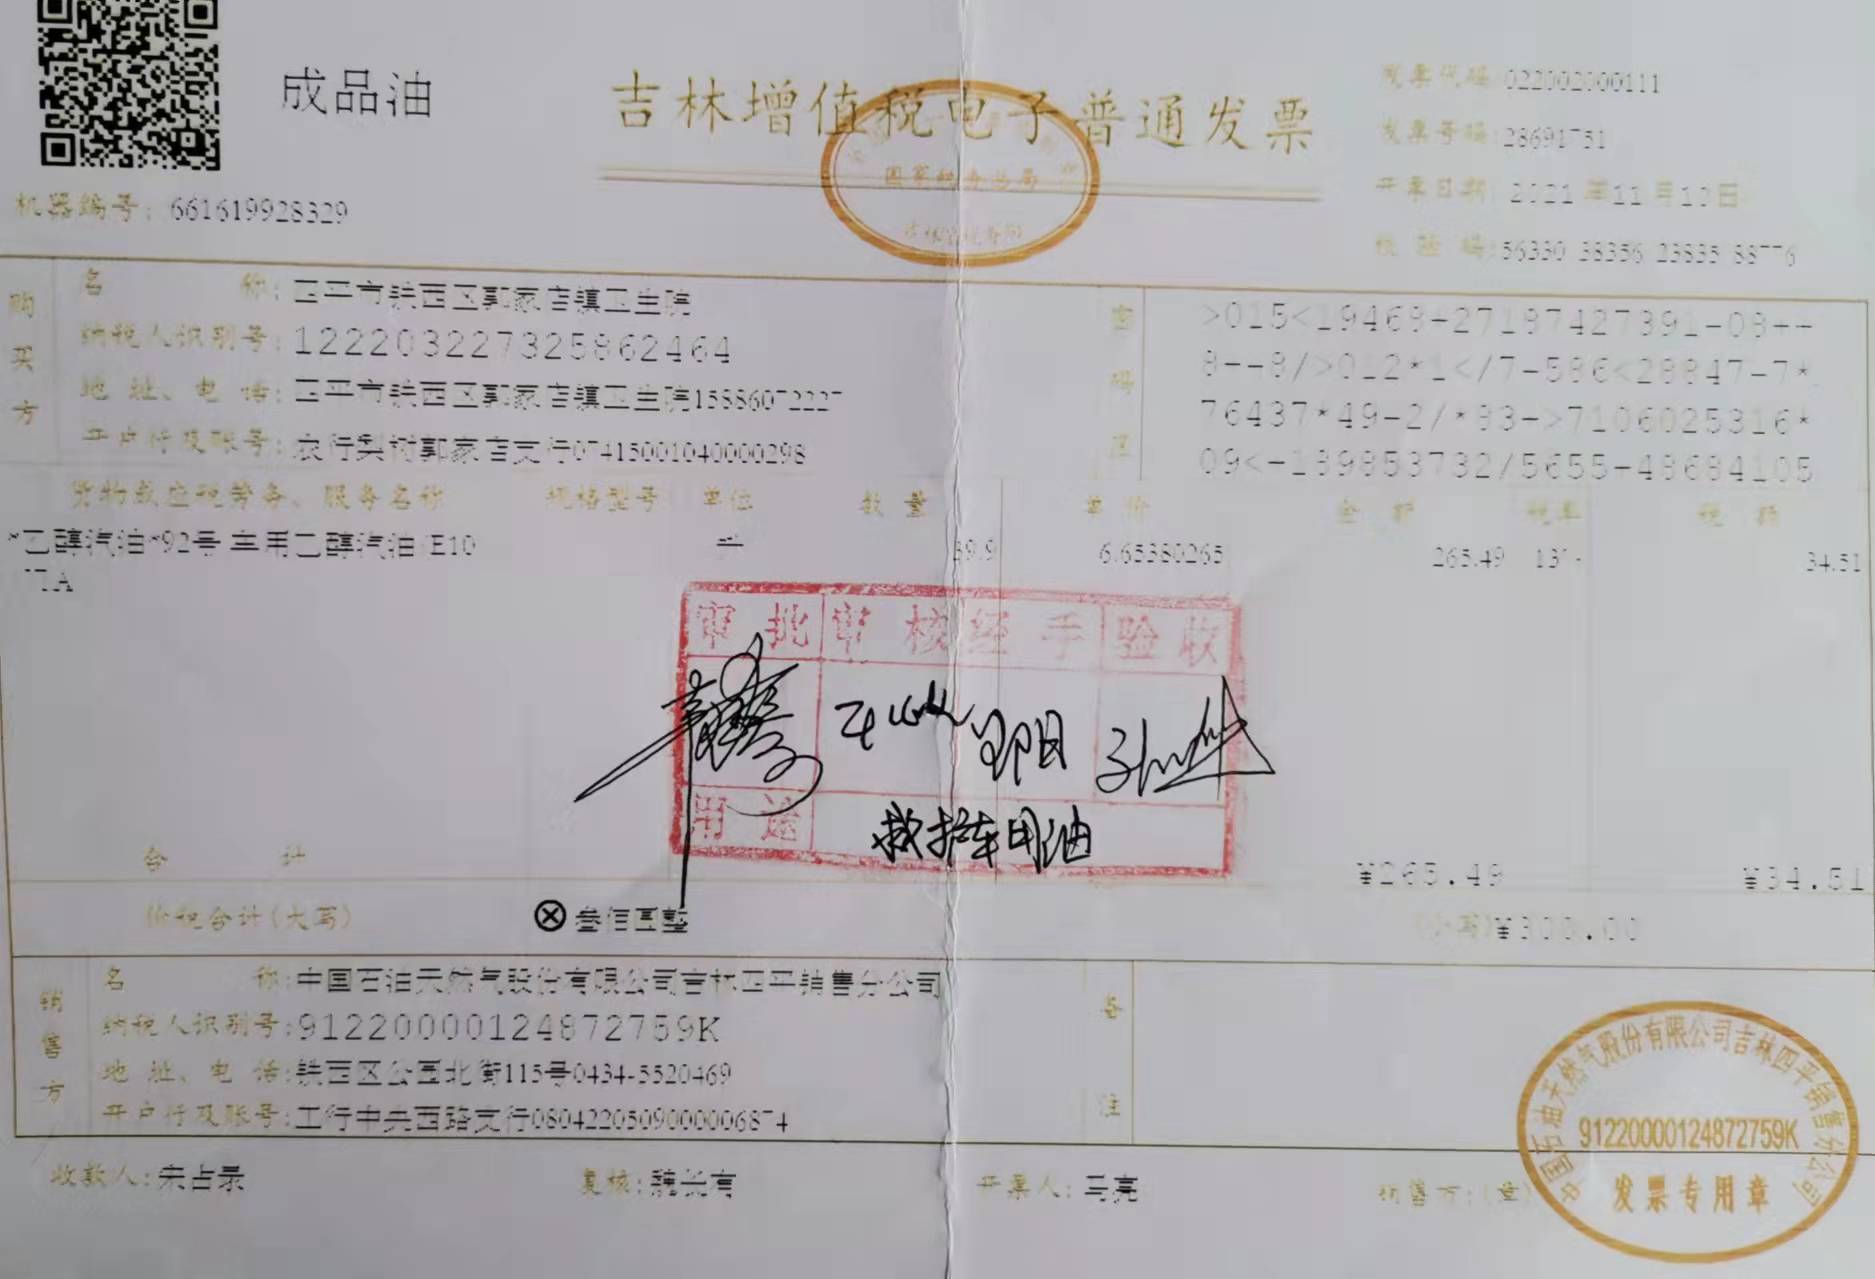 成品油
吉林增值税电子普通发票
发票代码:022002000111
发票号码:28691751
开票日期:2021年11月10日
校验码:56330 38356 23835 88776
机器编号:661619928329
国家税务总局
购买方
名称:四平市铁西区郭家店镇卫生院
纳税人识别号:122203227325862464
地址、电话:四平市铁西区郭家店镇卫生院15886072227
开户行及账号:农行梨树郭家店支行07415001040000298
密码区
>015<19468+27187427391-08+-
8+-8/>012*1</7-586<28847-7*
76437*49-2/*83->7106025316*
09<-189853732/5655-48684105
货物或应税劳务、服务名称 规格型号 单位 数量 单价 金额 税率 税额
*乙醇汽油*92号 车用乙醇汽油(E10 39.9 6.65380265 265.49 13% 34.51
审批 审核 经手 验收
用途 救护车用油
合计 ¥265.49 ¥34.51
价税合计(大写) ⊗叁佰圆整 (小写)¥300.00
销售方
名称:中国石油天然气股份有限公司吉林四平销售分公司
纳税人识别号:91220000124872759K
地址、电话:铁西区公园北街115号0434-5520469
开户行及账号:工行中央西路支行0804220509000006874
备注
收款人:宋占录 复核:魏长有 开票人:马亮 销售方:(章)
中国石油天然气股份有限公司吉林四平销售分公司
91220000124872759K
发票专用章